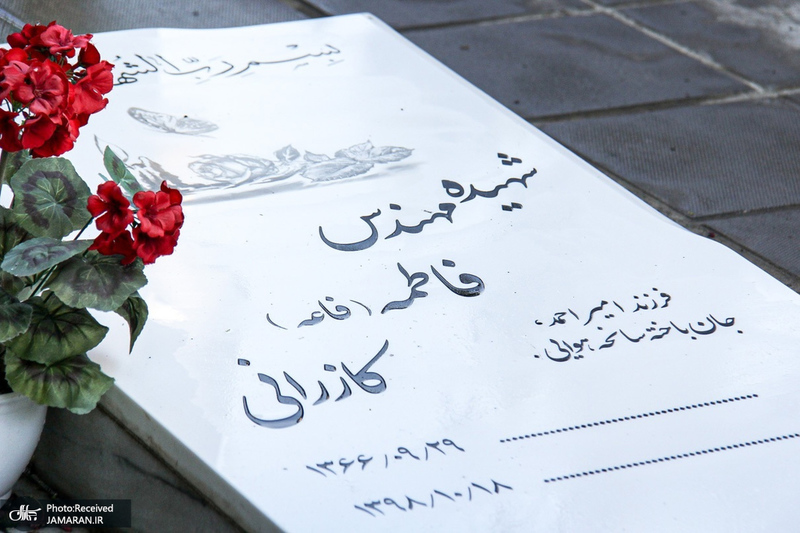 بسم رب الشه
شهیده مهندس
فاطمه (فاعه)
کازرانی
فرزند امیر احمد،
جان باخته سانحه هوایی.
۱۳۶۶/۰۹/۲۹
۱۳۹۸/۱۰/۱۸
Photo:Received
JAMARAN.IR